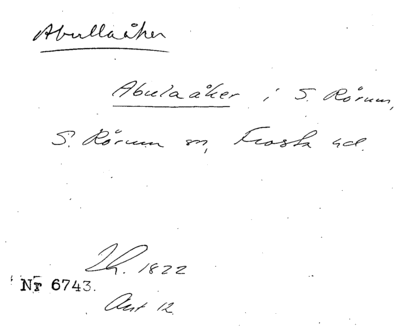 Abullaåker
Abulaåker i S. Rörum,
S. Rörum sn, Frosta hd.
Lh. 1822
Nr 6743.
Akt 12